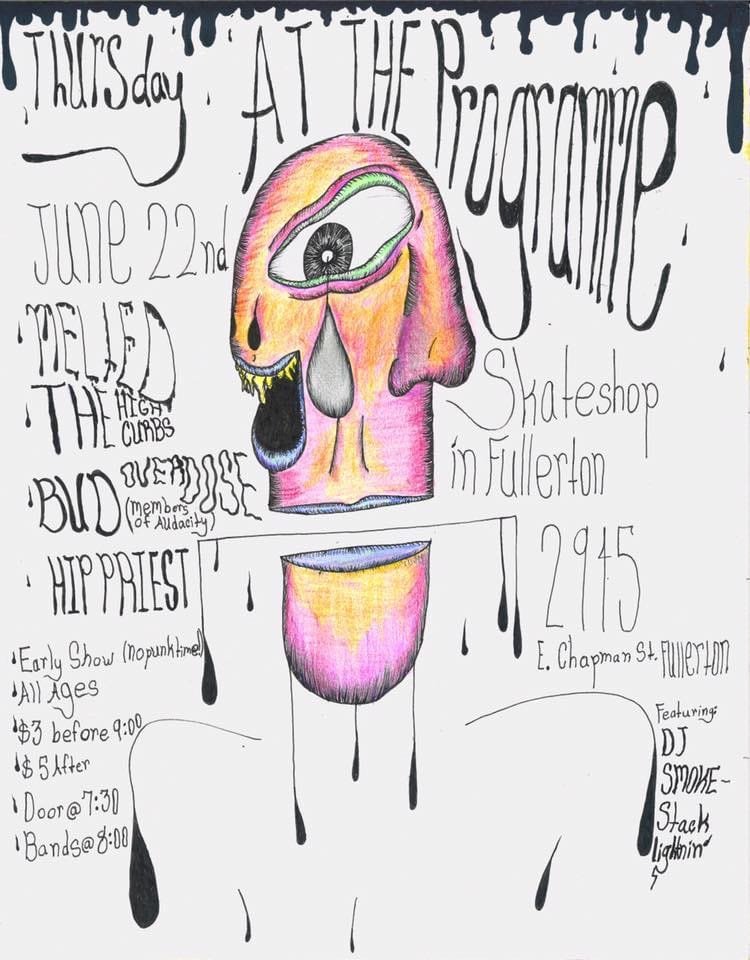 Thursday
AT THE Programme
June 22nd
MELTED
THE HIGH CURBS
BUD OVERDOSE
(members
of Audacity)
HIP PRIEST
Skateshop
in Fullerton
2945
E. Chapman St. Fullerton
Early Show (no punk time)
All Ages
$3 before 9:00
$5 After
Door@7:30
Bands@8:00
Featuring:
DJ
SMOKE-
Stack
lightnin'